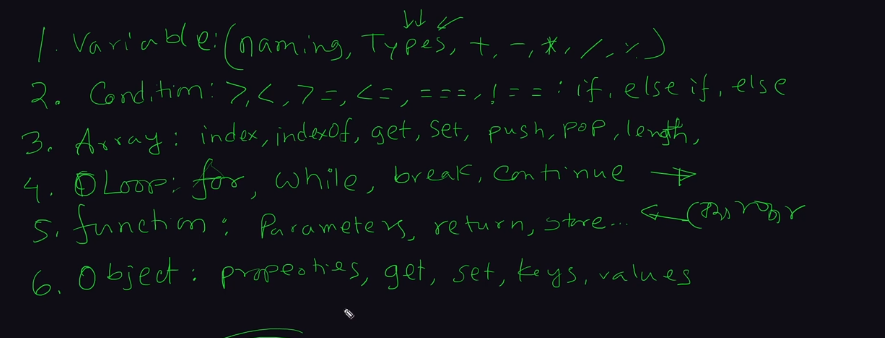 1. Variable: (naming, Types, +, -, *, /, %)
2. Condition: >, <, >=, <=, ===, !== : if, else if, else
3. Array: index, indexOf, get, set, push, pop, length,
4. Loop: for, while, break, continue →
5. function: Parameters, return, store... ←
6. Object: properties, get, set, keys, values